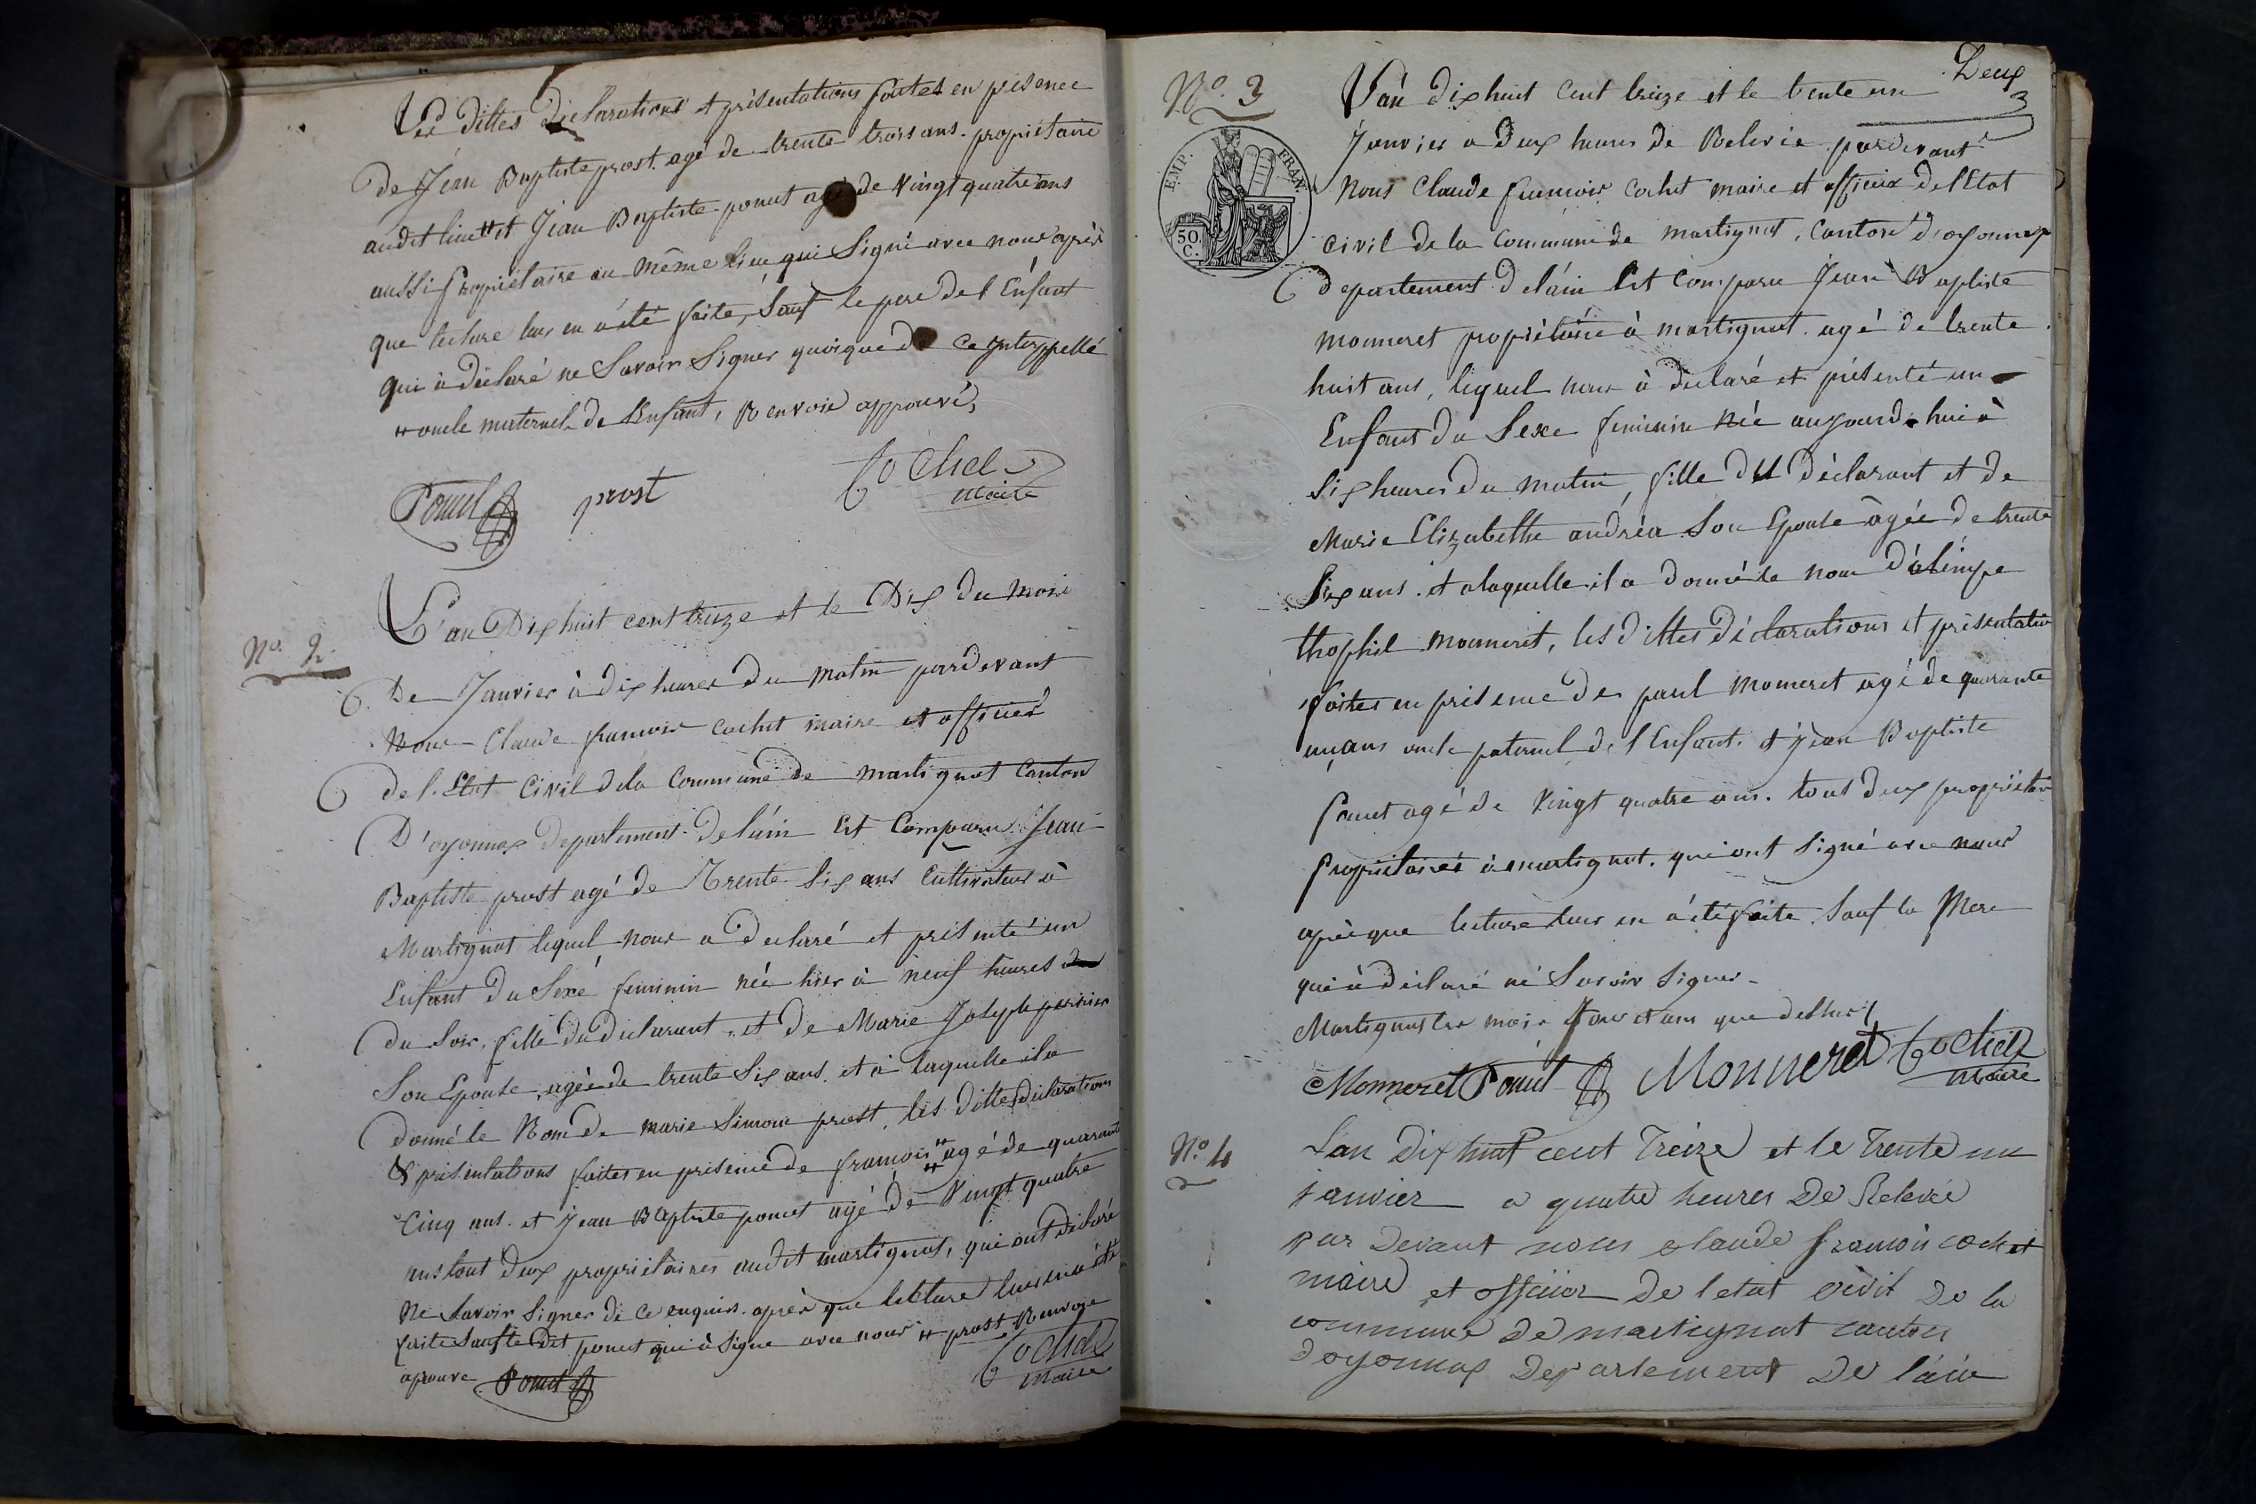 Les dittes déclarations et présentations faites en présence
de Jean Baptiste prost. agé de trente trois ans. propriétaire
audit lieu # et Jean Baptiste poncet agé de Vingt quatre ans
aussi propriétaire au même lieu qui Signé avec nous après
que lecture leur en a été faite, Sauf le pere de l'Enfant
qui à déclaré ne Savoir Signer quoique de ce interppellé
# oncle maternel de l'Enfant, Renvoie approuvé,
Poncet prost Cochet
Maire
No. 2.
L'an Dix huit cent treize et le Dix du mois
De Janvier à dix heures du matin pardevant
Nous Claude françois cochet maire et officier
de l'Etat Civil dela Commune de martignat Canton
D'oyonnax departement de l'ain Est Comparu Jean
Baptiste prost agé de Trente Six ans Cultivateur à
Martignat lequel nous a declaré et présenté un
Enfant du Sexe feminin née hier à neuf heures du
du Soir, fille du déclarant, et de Marie Joseph perrier
Son Epouse, agée de trente Six ans. et à laquelle il a
donné le Nom de marie Simone prost, les dittes déclarations
& présentations faites en présence de françois # agé de quarante
Cinq ans. et Jean Baptiste poncet agé de Vingt quatre
ans tout deux propriétaires audit martignat, qui ont déclaré
Ne Savoir Signer de ce enquis. après que lecture leur en a été
faite Sauf le Dit poncet qui à Signé avec nous # prost Renvoie
aprouvé Poncet Cochet
Maire
Deux
3
No. 3
EMP. FRAN.
50.
C.
L'an dix huit Cent treize et le trente un
Janvier a deux heures de Relevée pardevant
Nous Claude francois cochet maire et officier de l'Etat
civil de la Commune de martignat, Canton d'oyonnax
departement de l'ain Est Comparu Jean Baptiste
monneret propriétaire à martignat. agé de trente
huit ans, lequel nous à déclaré et présenté un
Enfant du Sexe feminin Née aujourd'hui à
Six heures du matin, fille du déclarant et de
Marie Elizabethe andréa Son Epouse âgée de trente
Six ans. et a laquelle il a donné le nom d'olimpe
thophil monneret, les dittes déclarations et présentatio
faites en présence de paul monneret agé de quarante
un ans oncle paternel de l'Enfant. et Jean Baptiste
poncet agé de Vingt quatre ans. tout deux propriétair
propriétaires à martignat. qui ont Signé avec nous
après que lecture leur en à été faite. Sauf la Mere
qui à déclaré né Savoir Signer.
Martignat les mois Jour et an que dessus
Monneret Poncet Monneret Cochet
Maire
No. 4
Lan dix huit cent Treize et le Trente un
janvier a quatre heures De Relevée
par Devant nous claude francois cochet
maire et officier De letat civil De la
commune De martignat canton
doyonnax Departement De l'ain